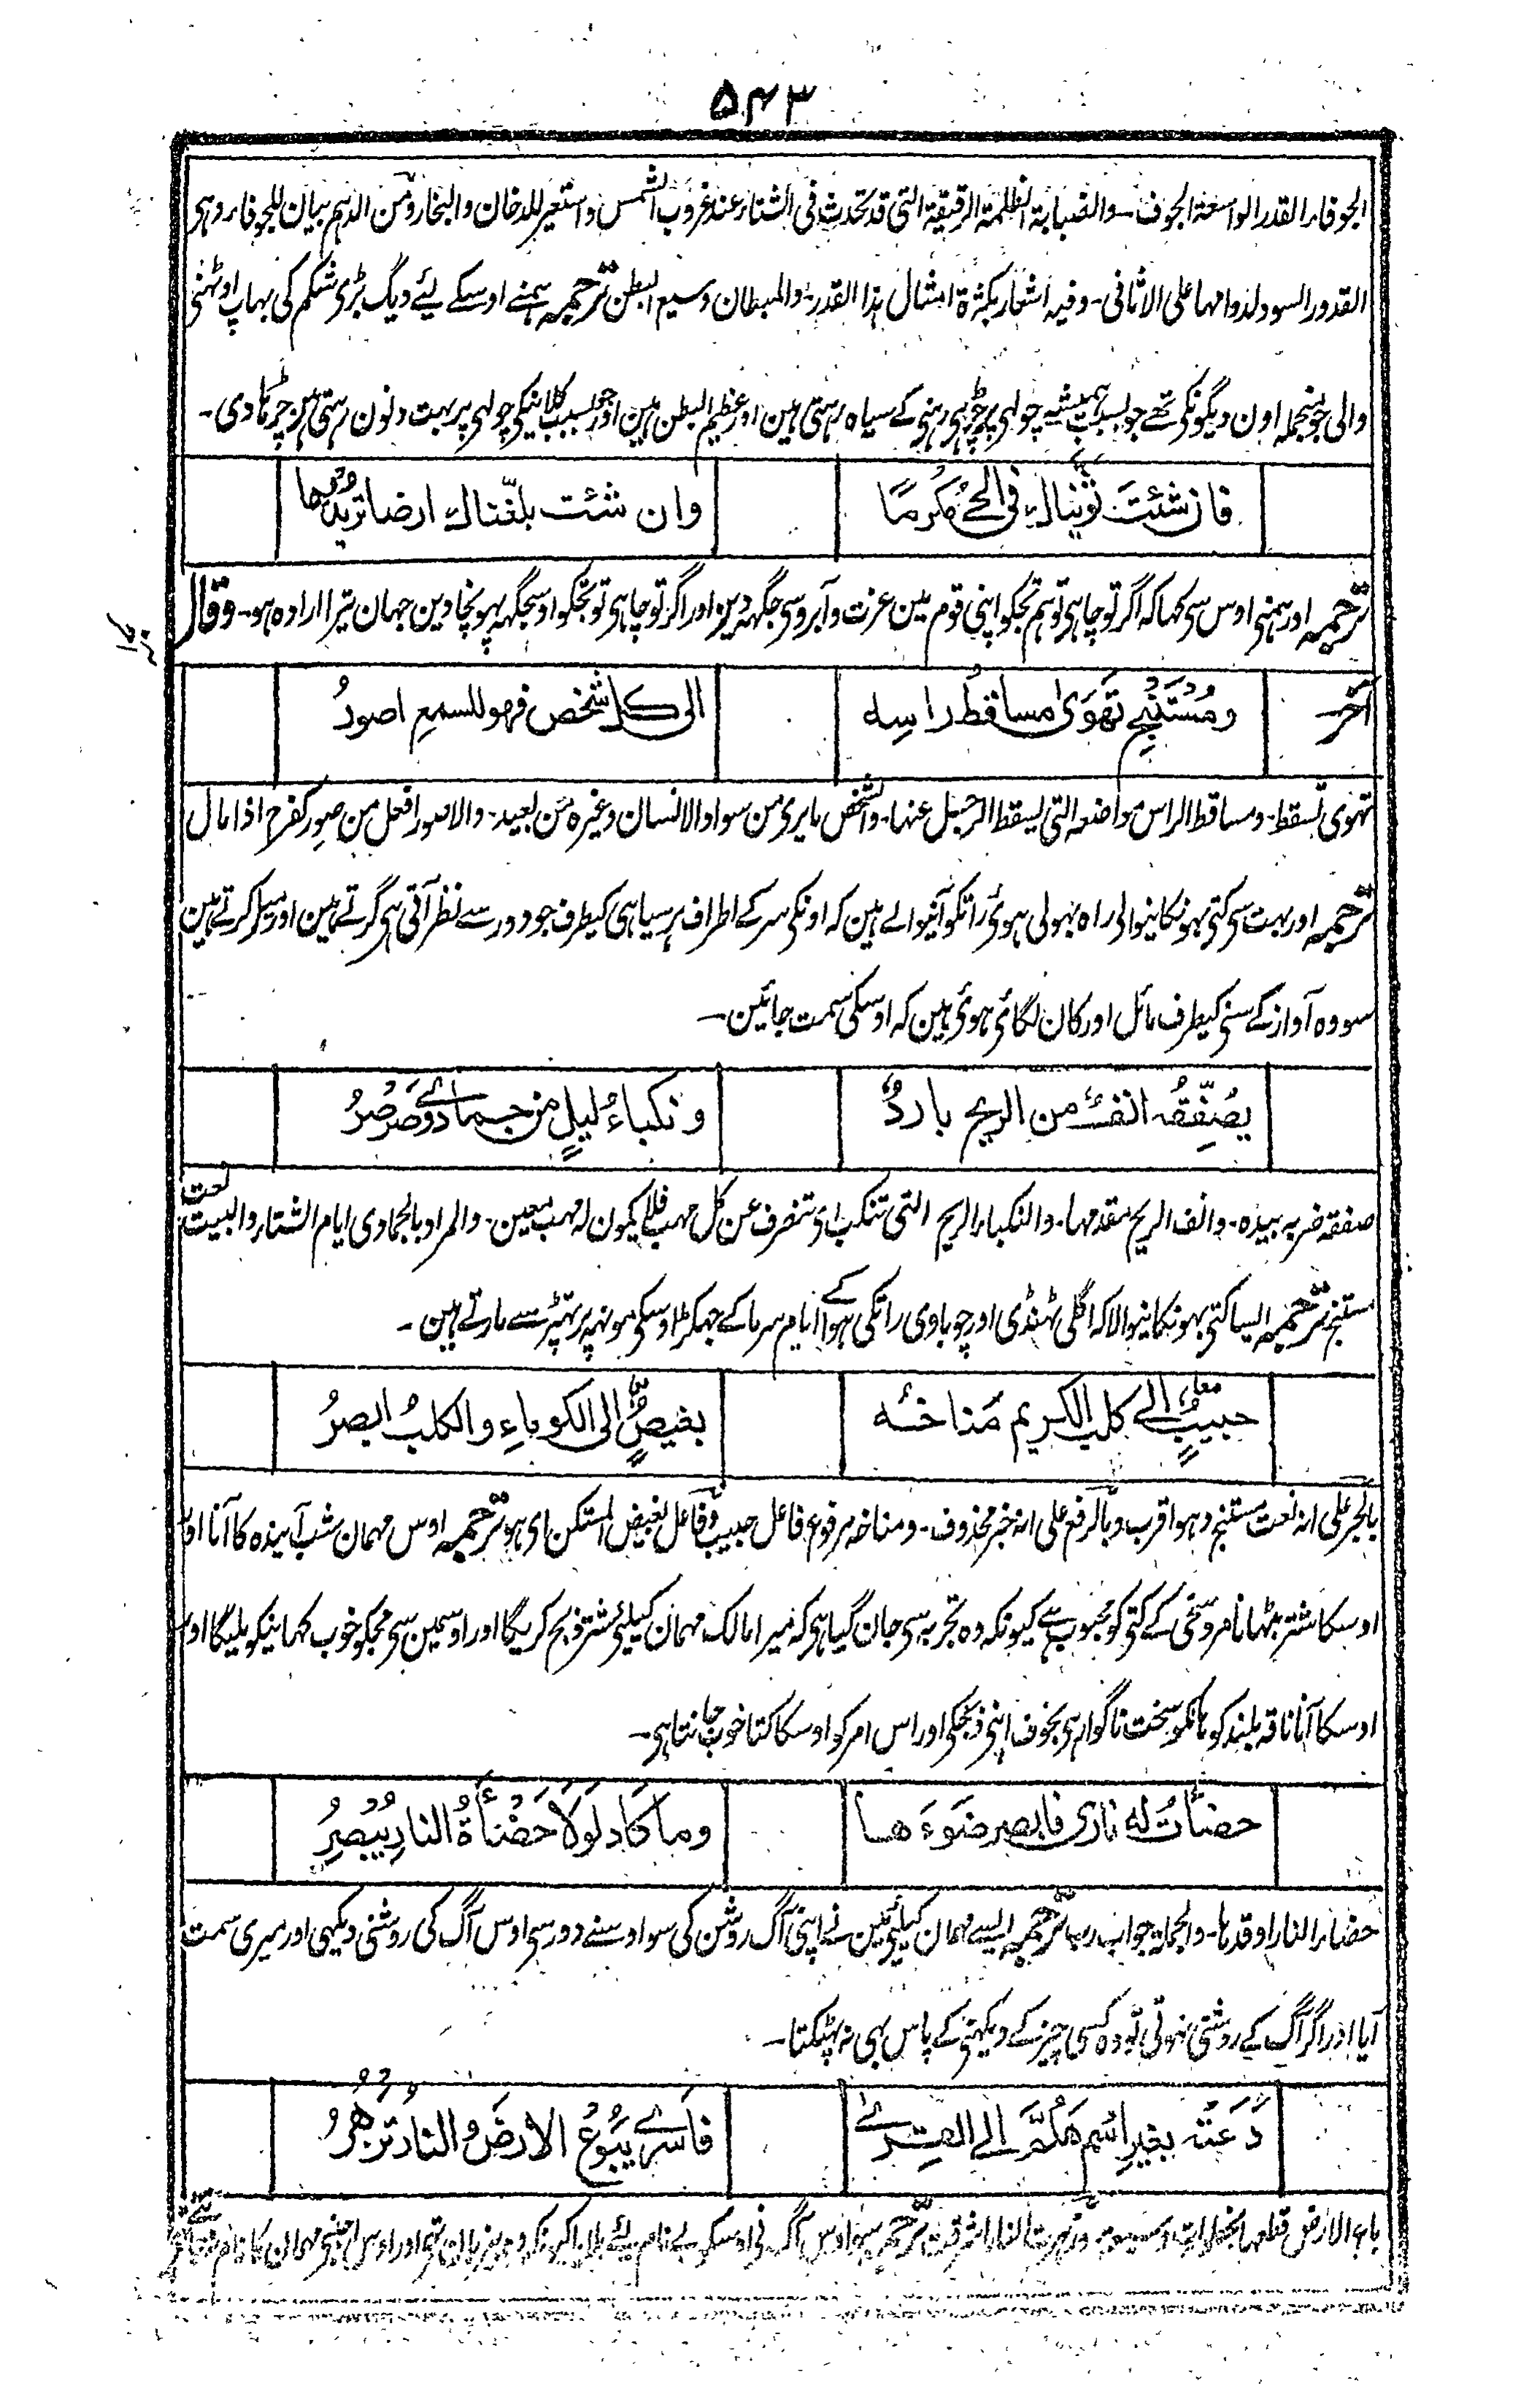 ۵۴۳
الجوفاء القدر الواسعة الجوف۔ والضبابة الظلمة الرقيقة التى قد تحدث فى الشتاء عند غروب الشمس واستعير للدخان والبخار ومن الدهم بيان للجوفاء وهى
القدور السود لدوامها على الاثافى۔ وفيه اشعار بكثرة امثال هذا القدر۔ والمبطان وسيع البطن ترجمہ ہمنے اوسکے لیے دیگ بڑی شکم کی بہاپ اوٹھنی
والی جو منجملہ اون دیگونکی تھے جو بسبب ہمیشہ چولہی پر چڑہی رہنی کے سیاہ رہتی ہین اور عظیم البطن ہین اور بسبب کلانیکی چولہی پر بہت دلون رہتی ہین چڑہا دی۔
فان شئتَ ثوّيناك فى الحے مُكرمًا
وان شئت بلّغناك ارضا تريدُها
ترجمہ اور ہمنی اوس سی کہا کہ اگر تو چاہی تو ہم تجکو اپنی قوم مین عزت و آبرو سی جگہہ دین اور اگر تو چاہی تو تجکو اوسجگہہ پہونچا دین جہان تیرا ارادہ ہو۔ وقال
آخر
ومُستَنبِحٍ تَهوَى مساقطُ راسِه
الى كل شخص فهو للسمع اصورُ
تہوى تسقط۔ ومساقط الراس مواضعہ التى يسقط الرجل عنها۔ والشخص ما يرى من سواد الانسان وغيره من بعيد۔ والاصور افعل من صور كفرح اذا مال
ترجمہ اور بہت سی کتی بہونکانیوالی راہ بہولی ہوئی راتکو آنیوالے ہین کہ اونکی سر کے اطراف ہر سیاہی کیطرف جو دور سے نظر آتی ہی گرتے ہین اور میل کرتے ہین
سو وہ آواز کے سننی کیطرف مائل اور کان لگائی ہوئی ہین کہ اوسکی سمت جائین۔
يُصفِّقُه انفٌ من الريح باردٌ
ونكباءُ ليلٍ من جمادٰے وصَرصَرُ
صفقه ضربه بيده۔ وانف الريح مقدمها۔ والنكباء الريح التى تنكب اى تنصرف عن كل مهب فلا يكون له مهب معين۔ والمراد بالجمادى ايام الشتاء والبيت نعت
مستنبح ترجمہ ایسا کتی بہونکانیوالا کہ اگلی ٹہنڈی اور چوباوی راتکی ہوا ایام سرما کے جہکڑ اوسکی مونہہ پر تہپڑ سے مارتے ہین۔
حبيبٌ الے كلب الكريم مُناخُه
بغيضٌ الى الكوماءِ والكلبُ ابصرُ
بالجر على انه نعت مستنبح وهو اقرب وبالرفع على انه خبر محذوف۔ ومناخه مرفوع فاعل حبيب وفاعل بغيض المستكن اى هو ترجمہ اوس مہمان شب آیندہ کا آنا اور
اوسکا شتر بٹہانا مرد سخی کے کتی کو محبوب ہے کیونکہ وہ تجربہ سی جان گیا ہی کہ میرا مالک مہمان کیلئی شتر ذبح کریگا اور اوسمین سی مجکو خوب کہانیکو ملیگا اور
اوسکا آنا ناقہ بلند کوہانکو سخت ناگوار ہی بخوف اپنی ذبحکی اور اس امر کو اوسکا کتا خوب جانتا ہی۔
حضأتُ له نارى فابصر ضَوءَها
وما كاد لَولا حَضْأَةُ النارِ يُبصِرُ
حضاء النار اوقدها۔ والجملة جواب رب ترجمہ ایسے مہمان کیلئی مین نے اپنی آگ روشن کی سو اوسنے دور سی اوس آگ کی روشنی دیکہی اور میری سمت
آیا اور اگر آگ کے روشنی نہوتی تو وہ کسی چیز کے دیکہنی کے پاس بہی نہ پہٹکتا۔
دَعَته بغيرِ اسم هَلُمَّ الے القِرٰے
فاسرٰے يَبُوعُ الارضَ والنار تزهرُ
باء الارض قطعها بخطوات وسيعة۔ وزهرت النار اشرقت ترجمہ سو اوس آگ نی اوسکو بے نام لئے بلایا